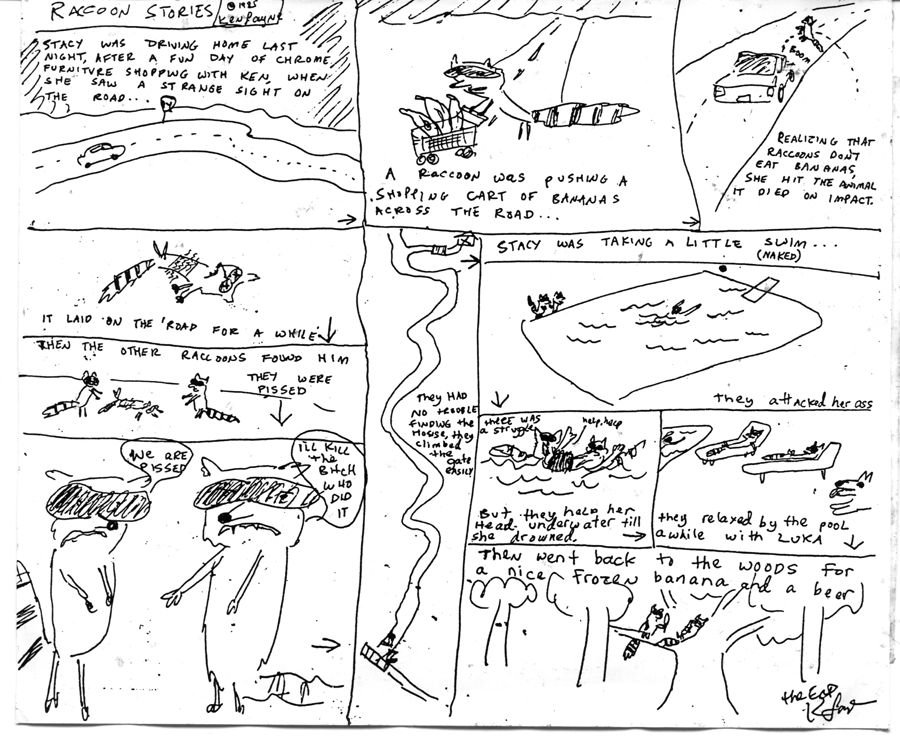 RACCOON STORIES
© 1985
KEN PAYNE
STACY WAS DRIVING HOME LAST
NIGHT, AFTER A FUN DAY OF CHROME
FURNITURE SHOPPING WITH KEN, WHEN
SHE SAW A STRANGE SIGHT ON
THE ROAD...
A RACCOON WAS PUSHING A
SHOPPING CART OF BANANAS
ACROSS THE ROAD...
BOOM
REALIZING THAT
RACCOONS DON'T
EAT BANANAS,
SHE HIT THE ANIMAL
IT DIED ON IMPACT.
IT LAID ON THE ROAD FOR A WHILE
WHEN THE OTHER RACCOONS FOUND HIM
THEY WERE
PISSED
WE ARE
PISSED
I'LL KILL
the
BITCH
WHO
DID
IT
They HAD
NO TROUBLE
FINDING the
HOUSE, they
climbed
the
gate
EASILY
STACY WAS TAKING A LITTLE SWIM...
(NAKED)
they attacked her ass
THERE WAS
a struggle
help, help
But they held her
Head underwater till
she drowned.
they relaxed by the pool
a while with LUKA
Then went back to the WOODS FOR
a nice frozen banana and a beer
the End